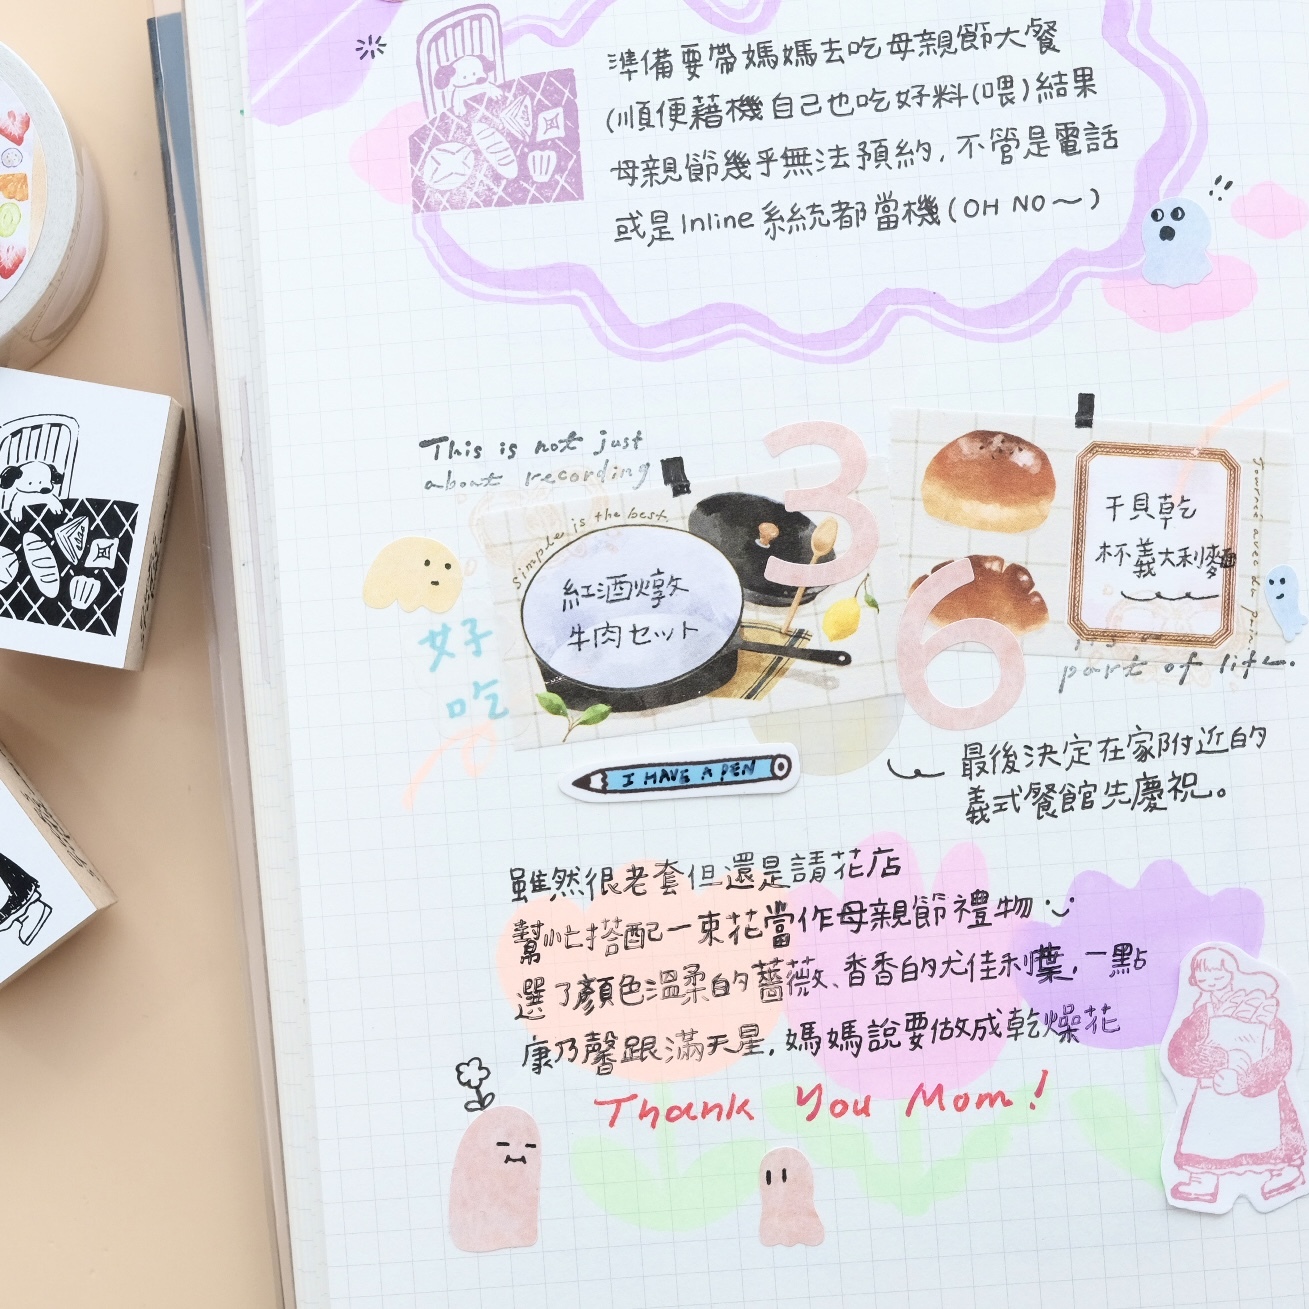 準備要帶媽媽去吃母親節大餐
(順便藉機自己也吃好料(喂)結果
母親節幾乎無法預約，不管是電話
或是Inline系統都當機(OH NO～)
This is not just
about recording
simple is the best.
紅酒燉
牛肉セット
36
干貝乾
杯義大利麵
part of life.
好
吃
I HAVE A PEN
最後決定在家附近的
義式餐館先慶祝。
雖然很老套但還是請花店
幫忙搭配一束花當作母親節禮物
選了顏色溫柔的薔薇、香香的尤佳利葉，一點
康乃馨跟滿天星，媽媽說要做成乾燥花
Thank You Mom!